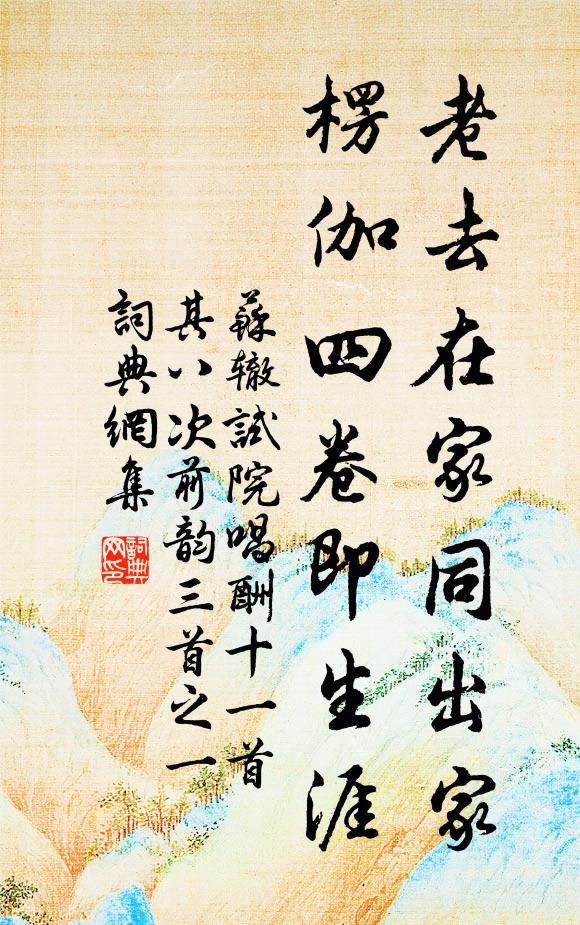 老去在家同出家
楞伽四卷即生涯
蘇辙試院唱酬十一首
其八次前韵三首之一
詞典網集
詞典
网印